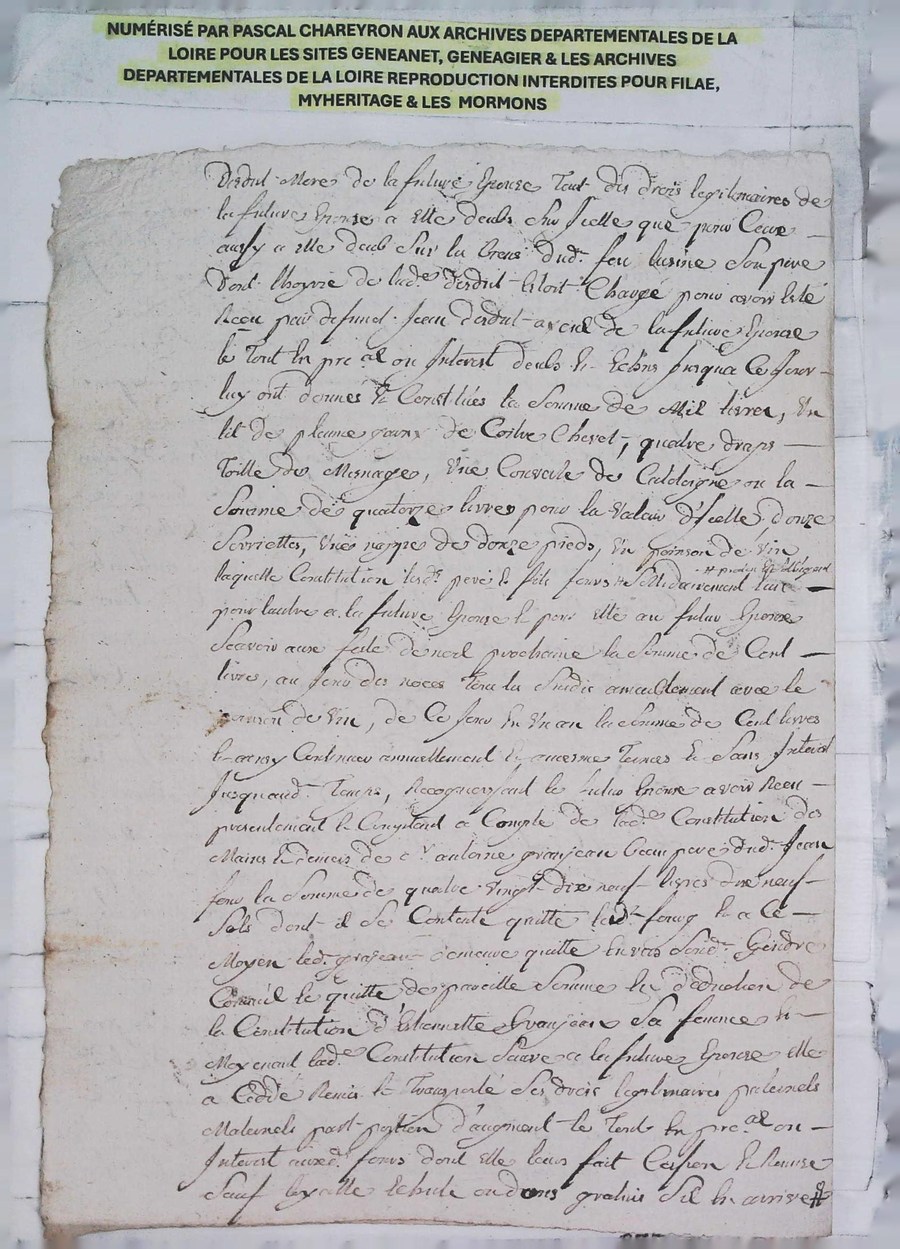 NUMÉRISÉ PAR PASCAL CHAREYRON AUX ARCHIVES DEPARTEMENTALES DE LA
LOIRE POUR LES SITES GENEANET, GENEAGIER & LES ARCHIVES
DEPARTEMENTALES DE LA LOIRE REPRODUCTION INTERDITES POUR FILAE,
MYHERITAGE & LES MORMONS
mere de la future Epouse Tout des drois legitimaires de
la future Epouse a Elle deubs sur Icelle que pour Ceux
aussy a elle deub sur la dud. feu son pere
Dont de lad.e Estoit Chargé pour avoir Esté
Receu par defunct Jean ayeul de la future Epouse
le Tout En pre.al ou Interest deubs Et Echus Jusqua Ce Jour
luy ont donnés Et Constitués la Somme de Mil livres, Un
lit de plume garny de Coitre Chevet, quatre draps
Toille de Mesnage, Une Couverte de Catalogne ou la
Somme de quatorze livres pour la Valeur d'Icelle, douze
Serviettes, Une nappe de douze pieds, Un poinson de Vin
laquelle Constitution lesd. pere Et fils Solidairement
pour lautre a la future Epouse Et pour Elle au futur Epoux
Scavoir aux feste de noel prochaine la Somme de Cent
livres, au Jour des noces Tout le Susdit ameublement avec le
poinson de Vin, de Ce Jour En Un an la Somme de Cent livres
Et ainsy Continuer annuellement Et a mesme Termes Et Sans Interest
Jusquaud. Temps, le futur Epoux avoir Receu
presentement Et Comptant a Compte de lad.e Constitution des
Mains Et deniers de s.r antoine granjean beau pere dud. Jean
la Somme de quatre vingt dix neuf livres dix neuf
Sols dont il Se Contente quitte led. Et a Ce
Moyen led. granjean demeure quitte Envers Sond. Gendre
Et quitte de pareille Somme En deduction de
la Constitution d'Estiennette Granjean Sa femme Et
Moyenant lad.e Constitution Sauve a la future Epouse Elle
a Cedde Remis Et Transporté Ses droits legitimaires paternels
Maternels part portion d'augment le Tout En pre.al ou
Interest auxd. dont Elle leur fait Cession Et Remise
Sauf Echute ou dons gratuis Sil En arrive #